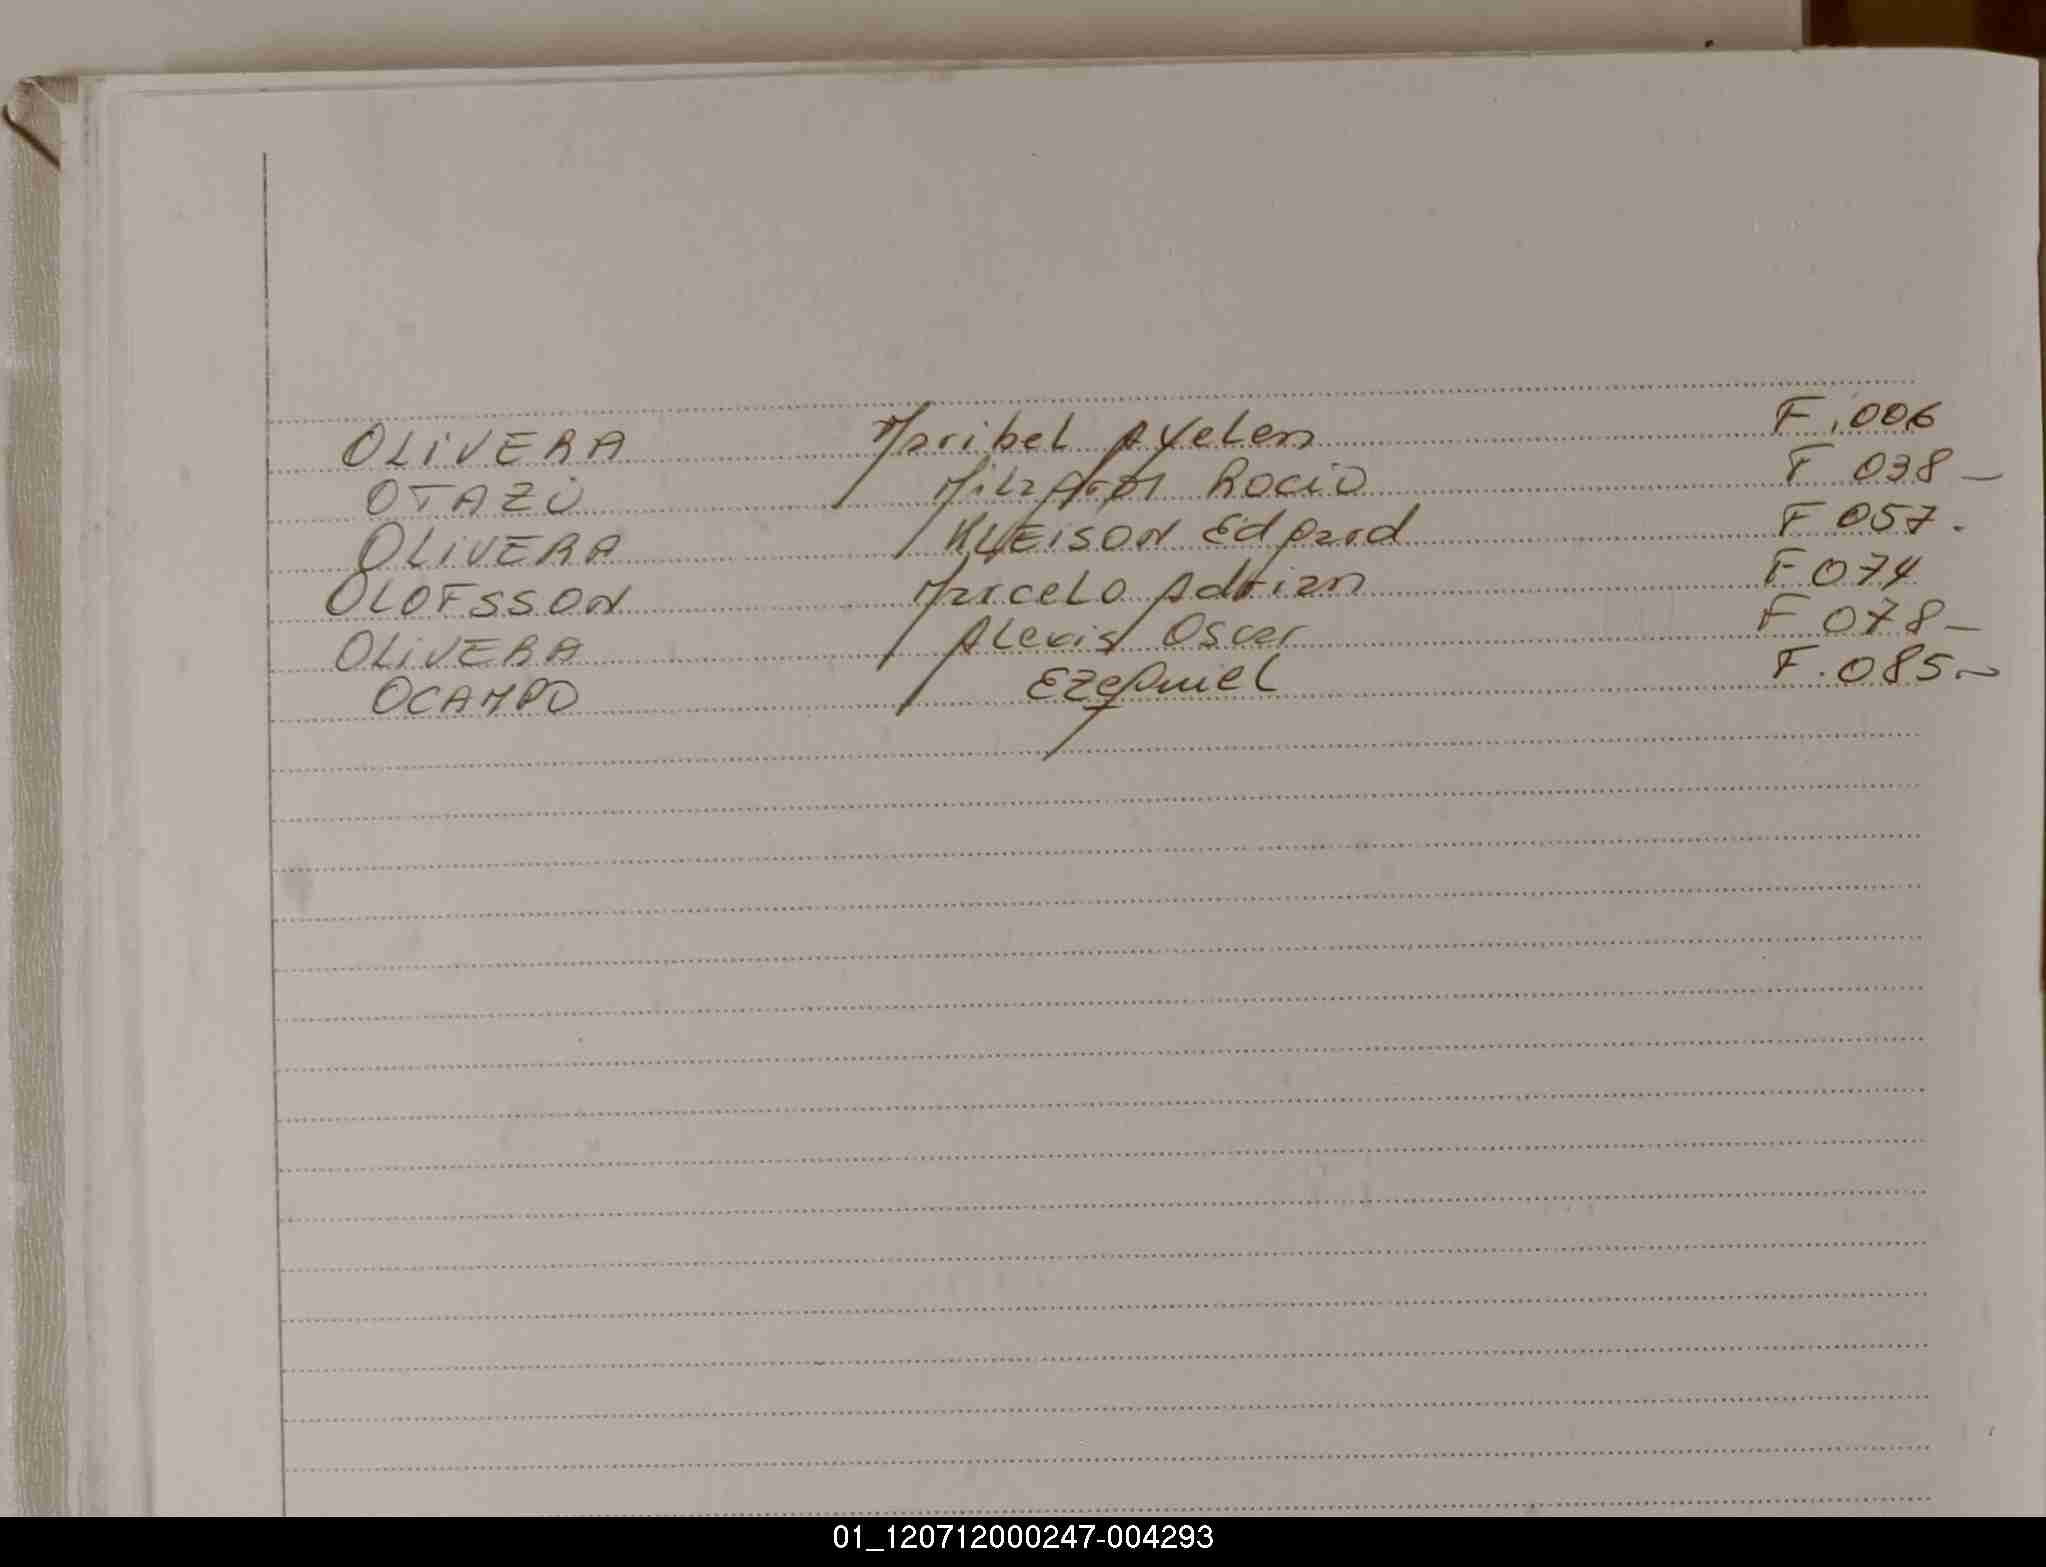 OLIVERA Maribel Ayelen F.006
OTAZÚ Milagros Rocio F 038 -
OLIVERA KLEISON Edgard F 057.
OLOFSSON Marcelo Adrian F 074
OLIVERA Alexis Oscar F 078 -
OCAMPO Ezequiel F. 085 -
01_120712000247-004293